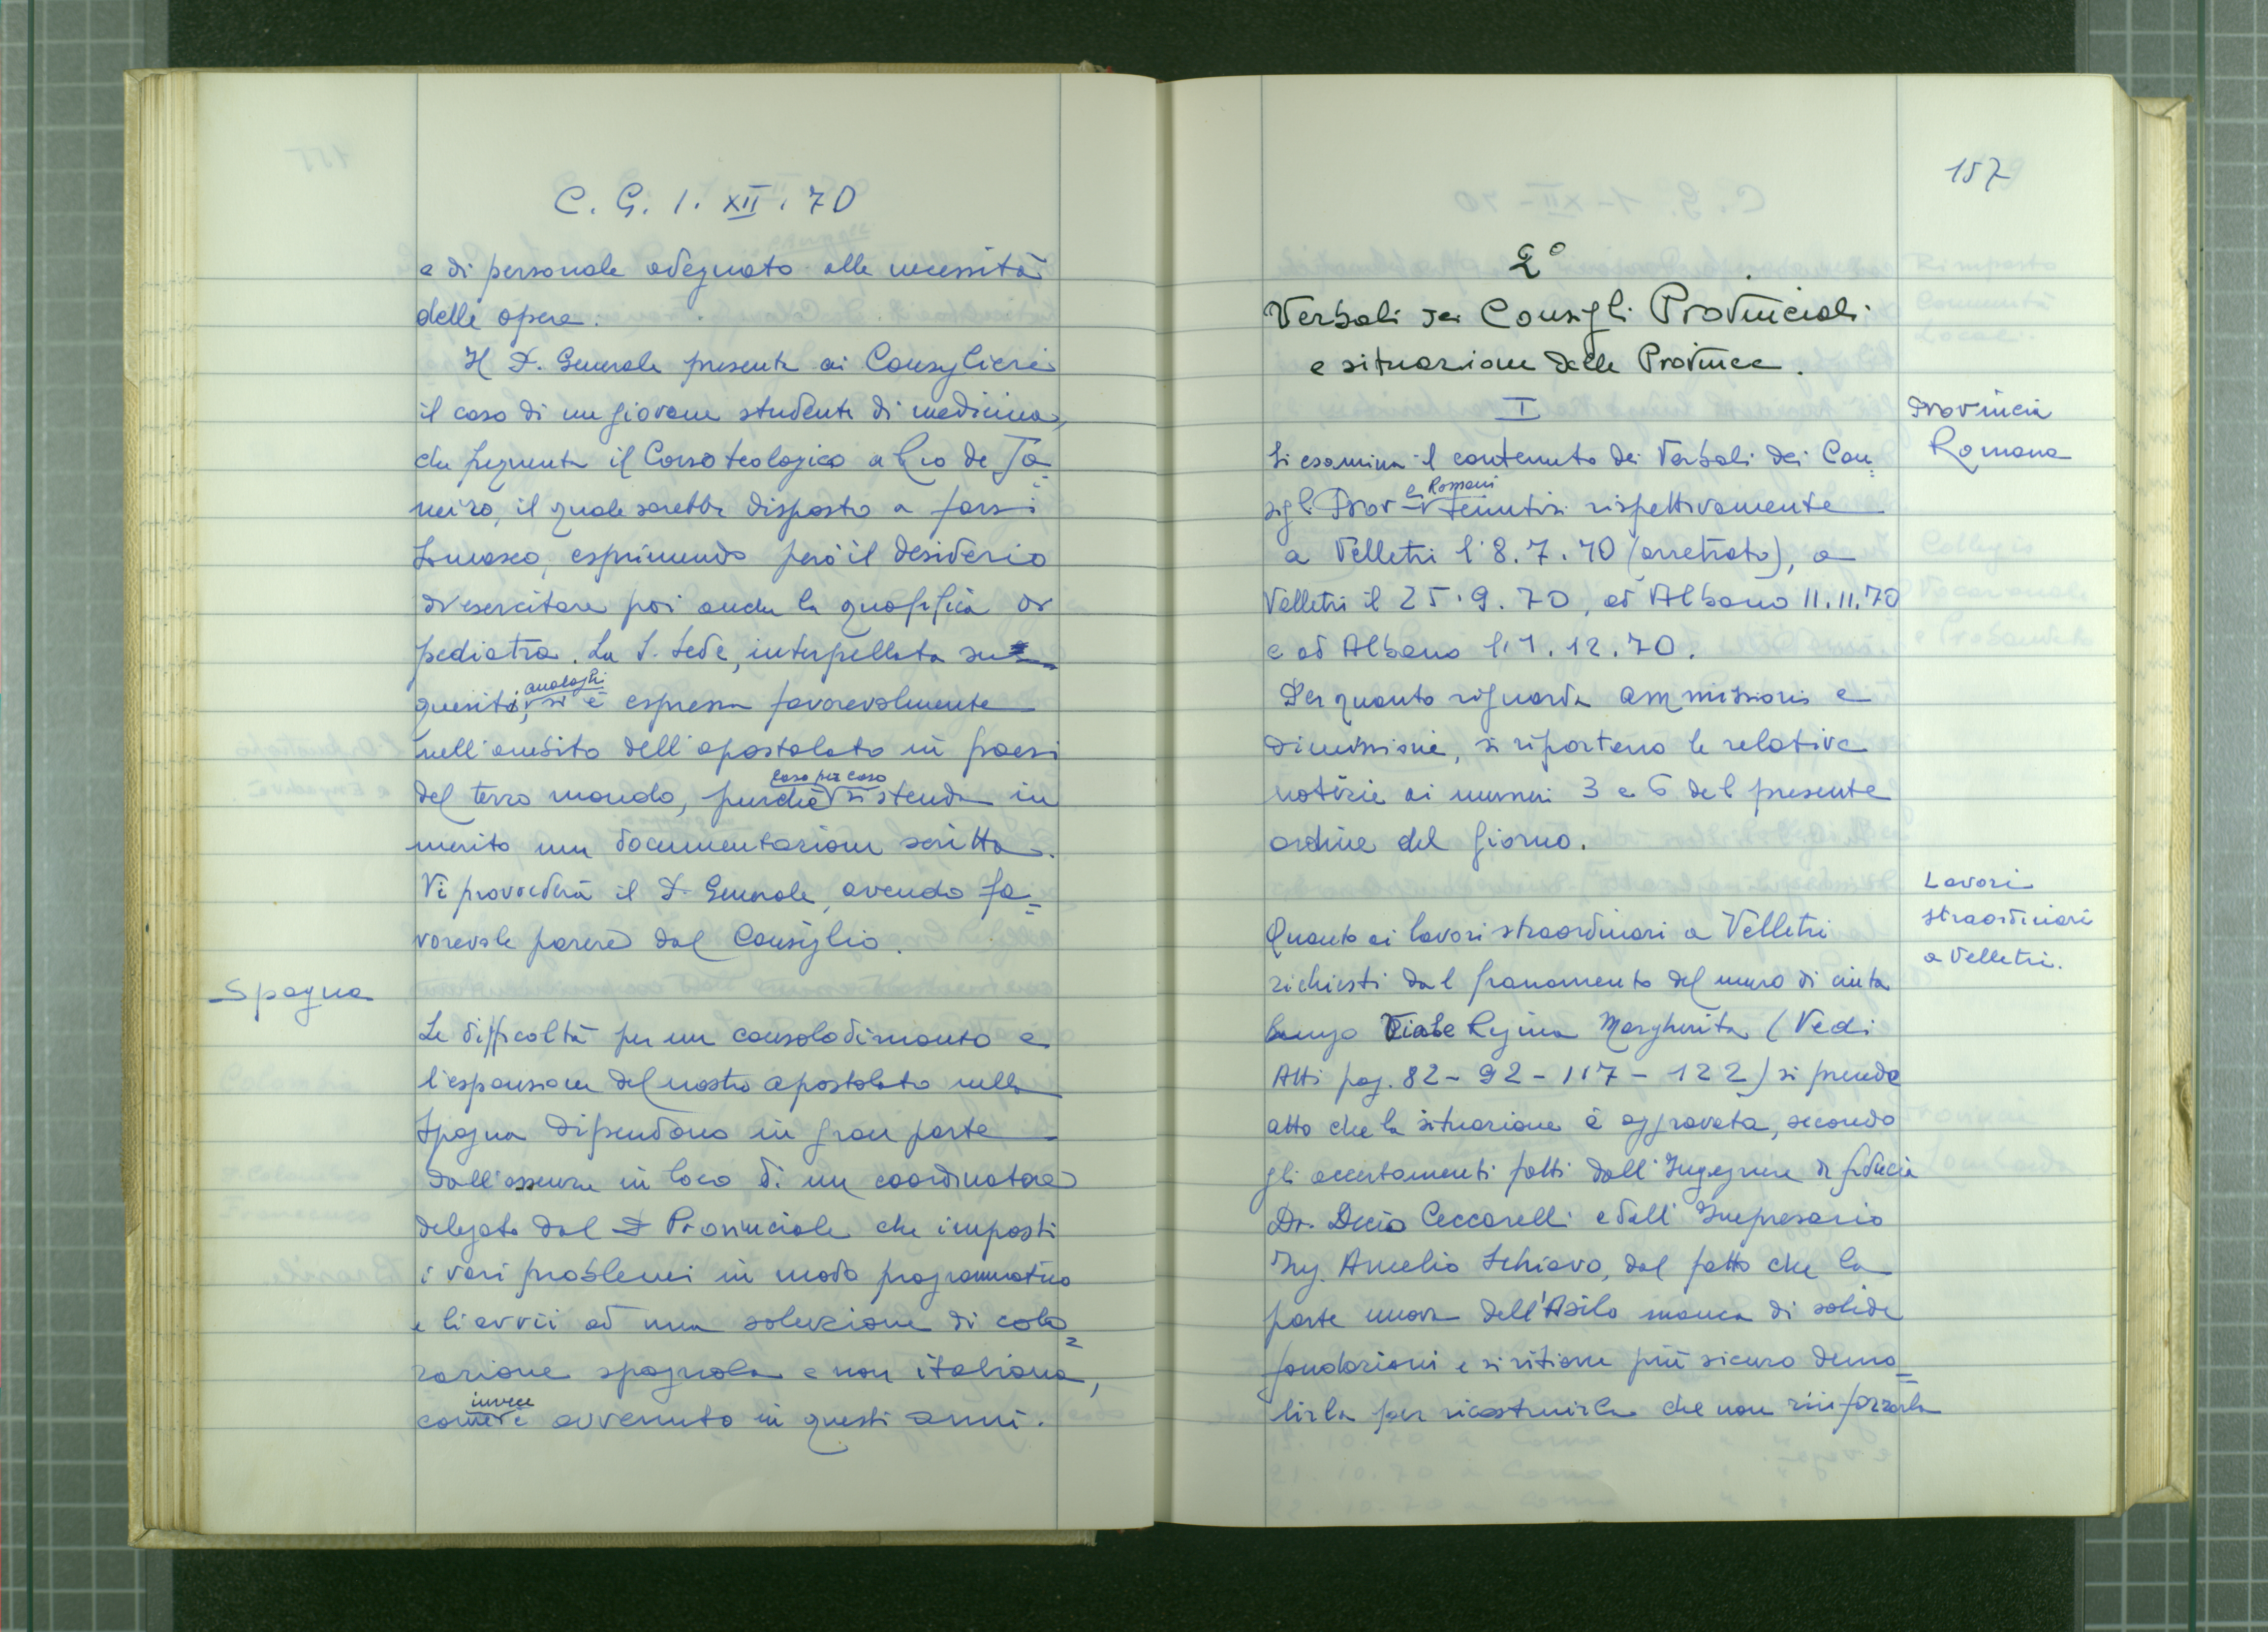 C. G. 1. XII. 70
e di personale adeguato alle necessità
delle opere.
Il P. Generale presenta ai Consiglieri
il caso di un giovane studente di medicina,
che frequenta il Corso teologico a Rio de Ja=
neiro, il quale sarebbe disposto a farsi
Somasco, esprimendo però il desiderio
di esercitare poi anche la qualifica di
pediatra. La S. Sede, interpellata su
quesiti analoghi, si è espressa favorevolmente
nell'ambito dell'apostolato in paesi
del terzo mondo, purché caso per caso si stenda in
merito una documentazione scritta.
Vi provvederà il P. Generale, avendo fa=
vorevole parere dal Consiglio.
Spagna
Le difficoltà per un consolodimento e
l'espansione del nostro apostolato nella
Spagna dipendono in gran parte
dall'assenza in loco di un coordinatore
delegato dal P. Provinciale che imposti
i vari problemi in modo programmatico
e li avvii ad una soluzione di colo=
razione spagnola e non italiana,
come invece è avvenuto in questi anni.
157
2°
Verbali dei Consigli Provinciali
e situazione delle Province.
I
Provincia
Romana
Si esamina il contenuto dei Verbali dei Con=
sigli Prov-li Romani tenutisi rispettivamente
a Velletri l'8.7.70 (arretrato), a
Velletri il 25.9.70, ad Albano 11.11.70
e ad Albano l'1.12.70.
Per quanto riguarda ammissioni e
dimissioni, si riportano le relative
notizie ai numeri 3 e 6 del presente
ordine del giorno.
Lavori
straordinari
a Velletri.
Quanto ai lavori straordinari a Velletri
richiesti dal franamento del muro di cinta
lungo Viale Regina Margherita (Vedi
Atti pag. 82-92-117-122) si prende
atto che la situazione è aggravata, secondo
gli accertamenti fatti dall'Ingegnere di fiducia
Dr. Decio Ceccarelli e dall'Impresario
Ing. Amelio Schiavo, dal fatto che la
parte nuova dell'Asilo manca di solide
fondazioni e si ritiene più sicuro demo=
lirla per ricostruirla che non rinforzarla